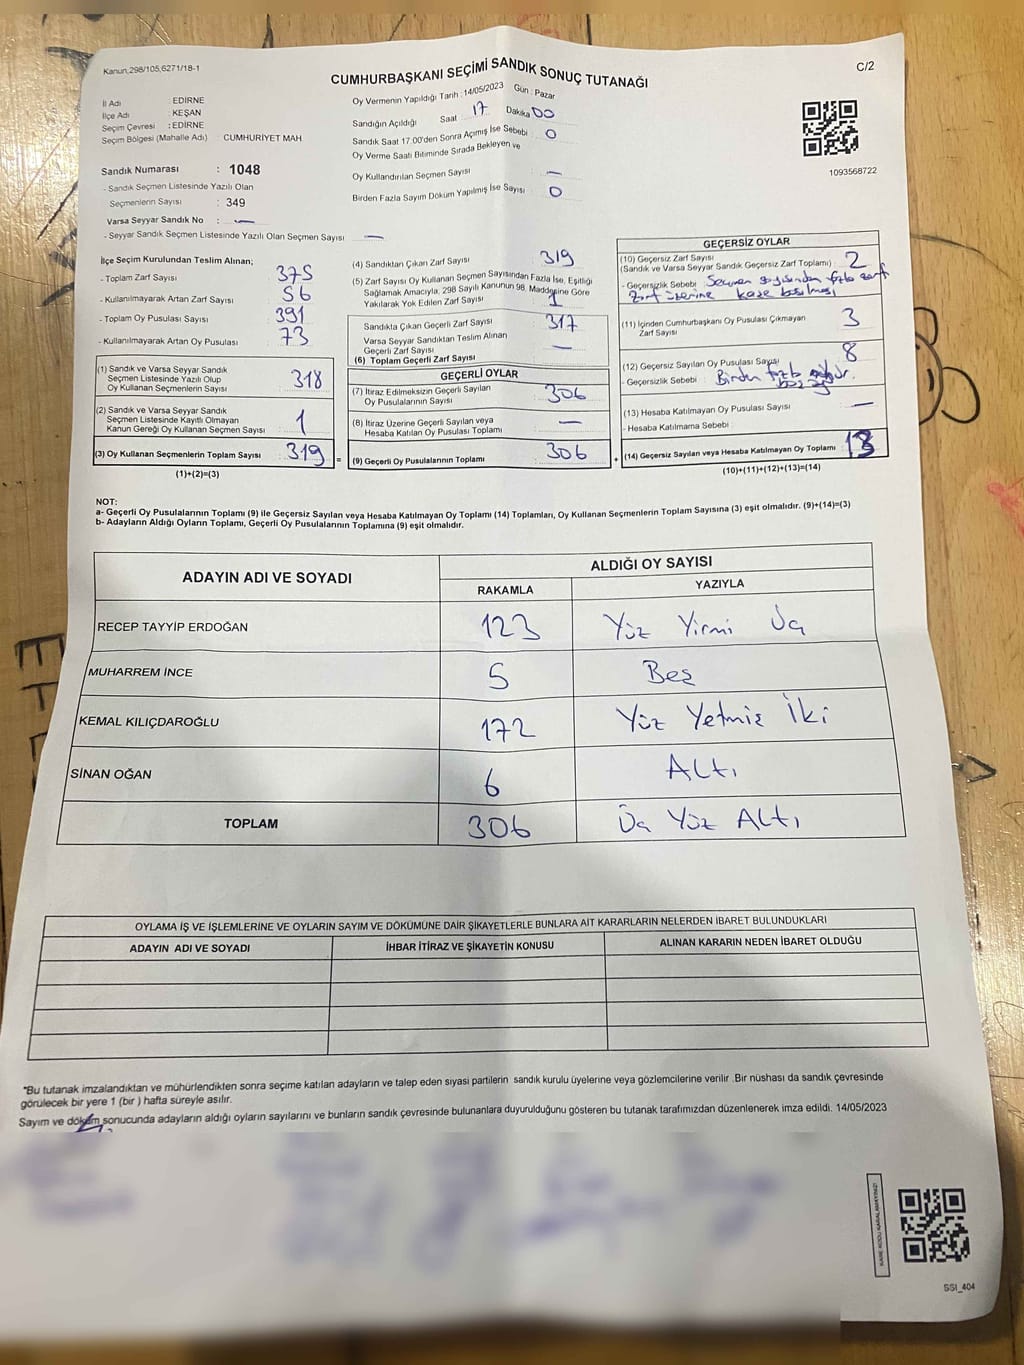 Kanun,298/105,6271/18-1
C/2
CUMHURBAŞKANI SEÇİMİ SANDIK SONUÇ TUTANAĞI
İl Adı : EDİRNE
İlçe Adı : KEŞAN
Seçim Çevresi : EDİRNE
Seçim Bölgesi (Mahalle Adı) : CUMHURİYET MAH
Sandık Numarası : 1048
- Sandık Seçmen Listesinde Yazılı Olan
Seçmenlerin Sayısı : 349
Varsa Seyyar Sandık No : —
- Seyyar Sandık Seçmen Listesinde Yazılı Olan Seçmen Sayısı —
Oy Vermenin Yapıldığı Tarih : 14/05/2023 Gün : Pazar
Sandığın Açıldığı Saat 17 Dakika 00
Sandık Saat 17.00'den Sonra Açımış İse Sebebi 0
Oy Verme Saati Bitiminde Sırada Bekleyen ve
Oy Kullandırılan Seçmen Sayısı —
Birden Fazla Sayım Döküm Yapılmış İse Sayısı 0
1093568722
İlçe Seçim Kurulundan Teslim Alınan;
- Toplam Zarf Sayısı 375
- Kullanılmayarak Artan Zarf Sayısı 56
- Toplam Oy Pusulası Sayısı 391
- Kullanılmayarak Artan Oy Pusulası 73
(1) Sandık ve Varsa Seyyar Sandık
Seçmen Listesinde Yazılı Olup
Oy Kullanan Seçmenlerin Sayısı 318
(2) Sandık ve Varsa Seyyar Sandık
Seçmen Listesinde Kayıtlı Olmayan
Kanun Gereği Oy Kullanan Seçmen Sayısı 1
(3) Oy Kullanan Seçmenlerin Toplam Sayısı 319 =
(1)+(2)=(3)
(4) Sandıktan Çıkan Zarf Sayısı 319
(5) Zarf Sayısı Oy Kullanan Seçmen Sayısından Fazla İse, Eşitliği
Sağlamak Amacıyla, 298 Sayılı Kanunun 98. Maddesine Göre
Yakılarak Yok Edilen Zarf Sayısı 1
Sandıkta Çıkan Geçerli Zarf Sayısı 317
Varsa Seyyar Sandıktan Teslim Alınan
Geçerli Zarf Sayısı —
(6) Toplam Geçerli Zarf Sayısı
GEÇERLİ OYLAR
(7) İtiraz Edilmeksizin Geçerli Sayılan
Oy Pusulalarının Sayısı 306
(8) İtiraz Üzerine Geçerli Sayılan veya
Hesaba Katılan Oy Pusulası Toplamı —
(9) Geçerli Oy Pusulalarının Toplamı 306 +
GEÇERSİZ OYLAR
(10) Geçersiz Zarf Sayısı
(Sandık ve Varsa Seyyar Sandık Geçersiz Zarf Toplamı) 2
- Geçersizlik Sebebi : Seçmen sayısından fazla zarf
Zarf üzerine kaşe basılması
(11) İçinden Cumhurbaşkanı Oy Pusulası Çıkmayan
Zarf Sayısı 3
(12) Geçersiz Sayılan Oy Pusulası Sayısı 8
- Geçersizlik Sebebi : Birden fazla
(13) Hesaba Katılmayan Oy Pusulası Sayısı —
- Hesaba Katılmama Sebebi :
(14) Geçersiz Sayılan veya Hesaba Katılmayan Oy Toplamı 13
(10)+(11)+(12)+(13)=(14)
NOT:
a- Geçerli Oy Pusulalarının Toplamı (9) ile Geçersiz Sayılan veya Hesaba Katılmayan Oy Toplamı (14) Toplamları, Oy Kullanan Seçmenlerin Toplam Sayısına (3) eşit olmalıdır. (9)+(14)=(3)
b- Adayların Aldığı Oyların Toplamı, Geçerli Oy Pusulalarının Toplamına (9) eşit olmalıdır.
ADAYIN ADI VE SOYADI
ALDIĞI OY SAYISI
RAKAMLA YAZIYLA
RECEP TAYYİP ERDOĞAN 123 Yüz Yirmi Üç
MUHARREM İNCE 5 Beş
KEMAL KILIÇDAROĞLU 172 Yüz Yetmiş İki
SİNAN OĞAN 6 Altı
TOPLAM 306 Üç Yüz Altı
OYLAMA İŞ VE İŞLEMLERİNE VE OYLARIN SAYIM VE DÖKÜMÜNE DAİR ŞİKAYETLERLE BUNLARA AİT KARARLARIN NELERDEN İBARET BULUNDUKLARI
ADAYIN ADI VE SOYADI İHBAR İTİRAZ VE ŞİKAYETİN KONUSU ALINAN KARARIN NEDEN İBARET OLDUĞU
*Bu tutanak imzalandıktan ve mühürlendikten sonra seçime katılan adayların ve talep eden siyasi partilerin sandık kurulu üyelerine veya gözlemcilerine verilir .Bir nüshası da sandık çevresinde
görülecek bir yere 1 (bir ) hafta süreyle asılır.
Sayım ve döküm sonucunda adayların aldığı oyların sayılarını ve bunların sandık çevresinde bulunanlara duyurulduğunu gösteren bu tutanak tarafımızdan düzenlenerek imza edildi. 14/05/2023
KARE KODU KARALAMAYINIZ!
SSI_404